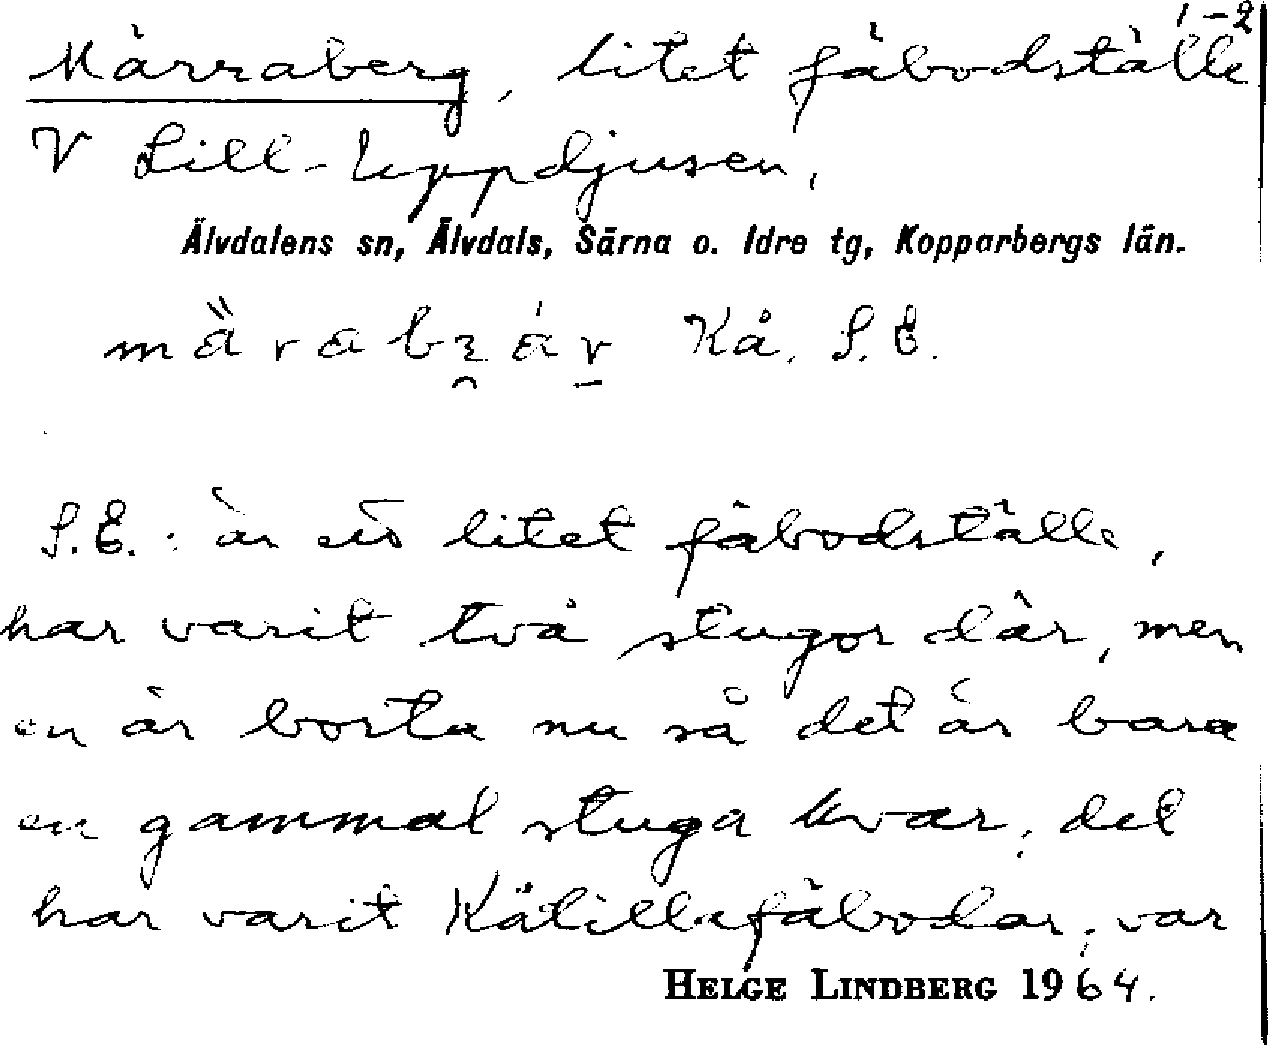 1-2
Märraberg, litet fäbodställe
V Lill-Uppdjusen,
Älvdalens sn, Älvdals, Särna o. Idre tg, Kopparbergs län.
Kå, S.E.
S.E.: är ett litet fäbodställe,
har varit två stugor där, men
en är borta nu så det är bara
en gammal stuga kvar; det
har varit Kåtillafäbodar; var
HELGE LINDBERG 1964.